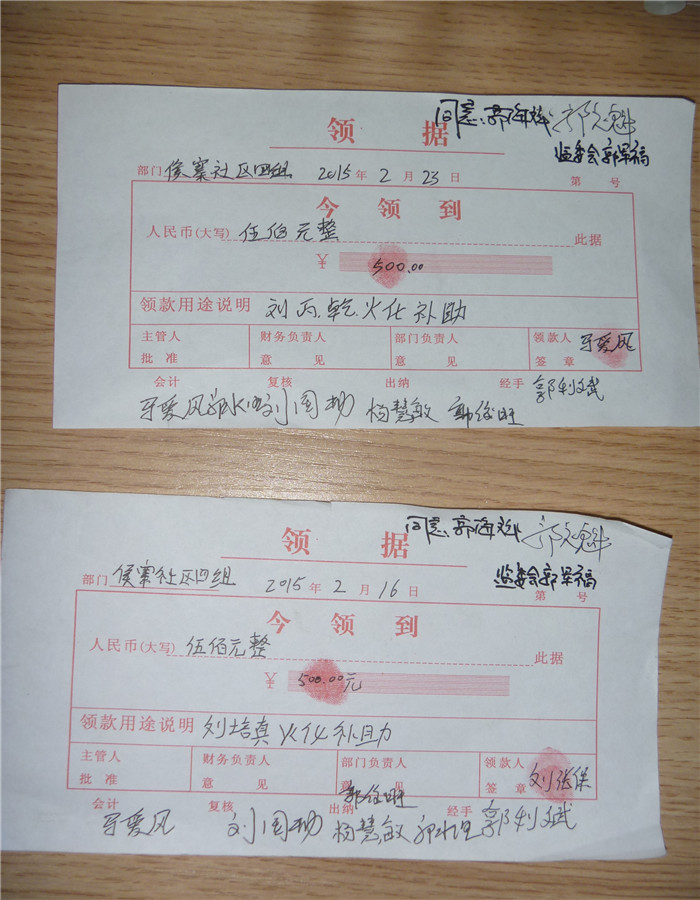 同意
领 据
监委会郭军福
部门 侯寨社区四组 2015年 2月 23日 第 号
今 领 到
人民币(大写) 伍佰元整 此据
¥ 500.00
领款用途说明 刘丙乾火化补助
主管人 财务负责人 部门负责人 领款人
批准 意见 意见 签章
会计 复核 出纳 经手 郭利斌
刘国 杨慧敏
同意
领 据
监委会郭军福
部门 侯寨社区四组 2015年 2月 16日 第 号
今 领 到
人民币(大写) 伍佰元整 此据
¥ 500.00元
领款用途说明 刘培真火化补助
主管人 财务负责人 部门负责人 领款人
批准 意见 意见 签章 刘张保
会计 复核 出纳 经手 郭利斌
刘国 杨慧敏